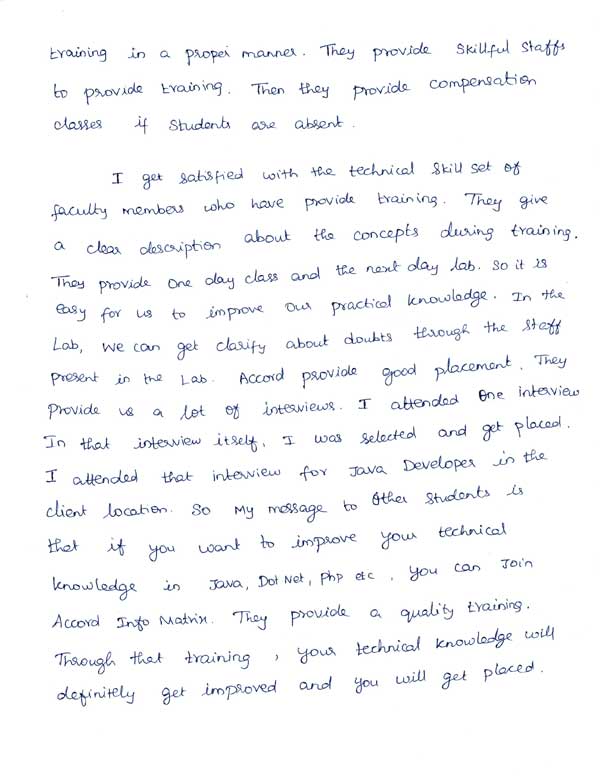 training in a proper manner. They provide skillful staffs
to provide training. Then they provide compensation
classes if students are absent.
I get satisfied with the technical skill set of
faculty members who have provide training. They give
a clear description about the concepts during training.
They provide one day class and the next day lab. So it is
easy for us to improve our practical knowledge. In the
Lab, we can get clarify about doubts through the staff
present in the Lab. Accord provide good placement. They
provide us a lot of interviews. I attended one interview
In that interview itself, I was selected and get placed.
I attended that interview for Java Developer in the
client location. So My message to other students is
that if you want to improve your technical
knowledge in Java, Dot Net, Php etc, you can Join
Accord Info Matrix. They provide a quality training.
Through that training, your technical knowledge will
definitely get improved and you will get placed.